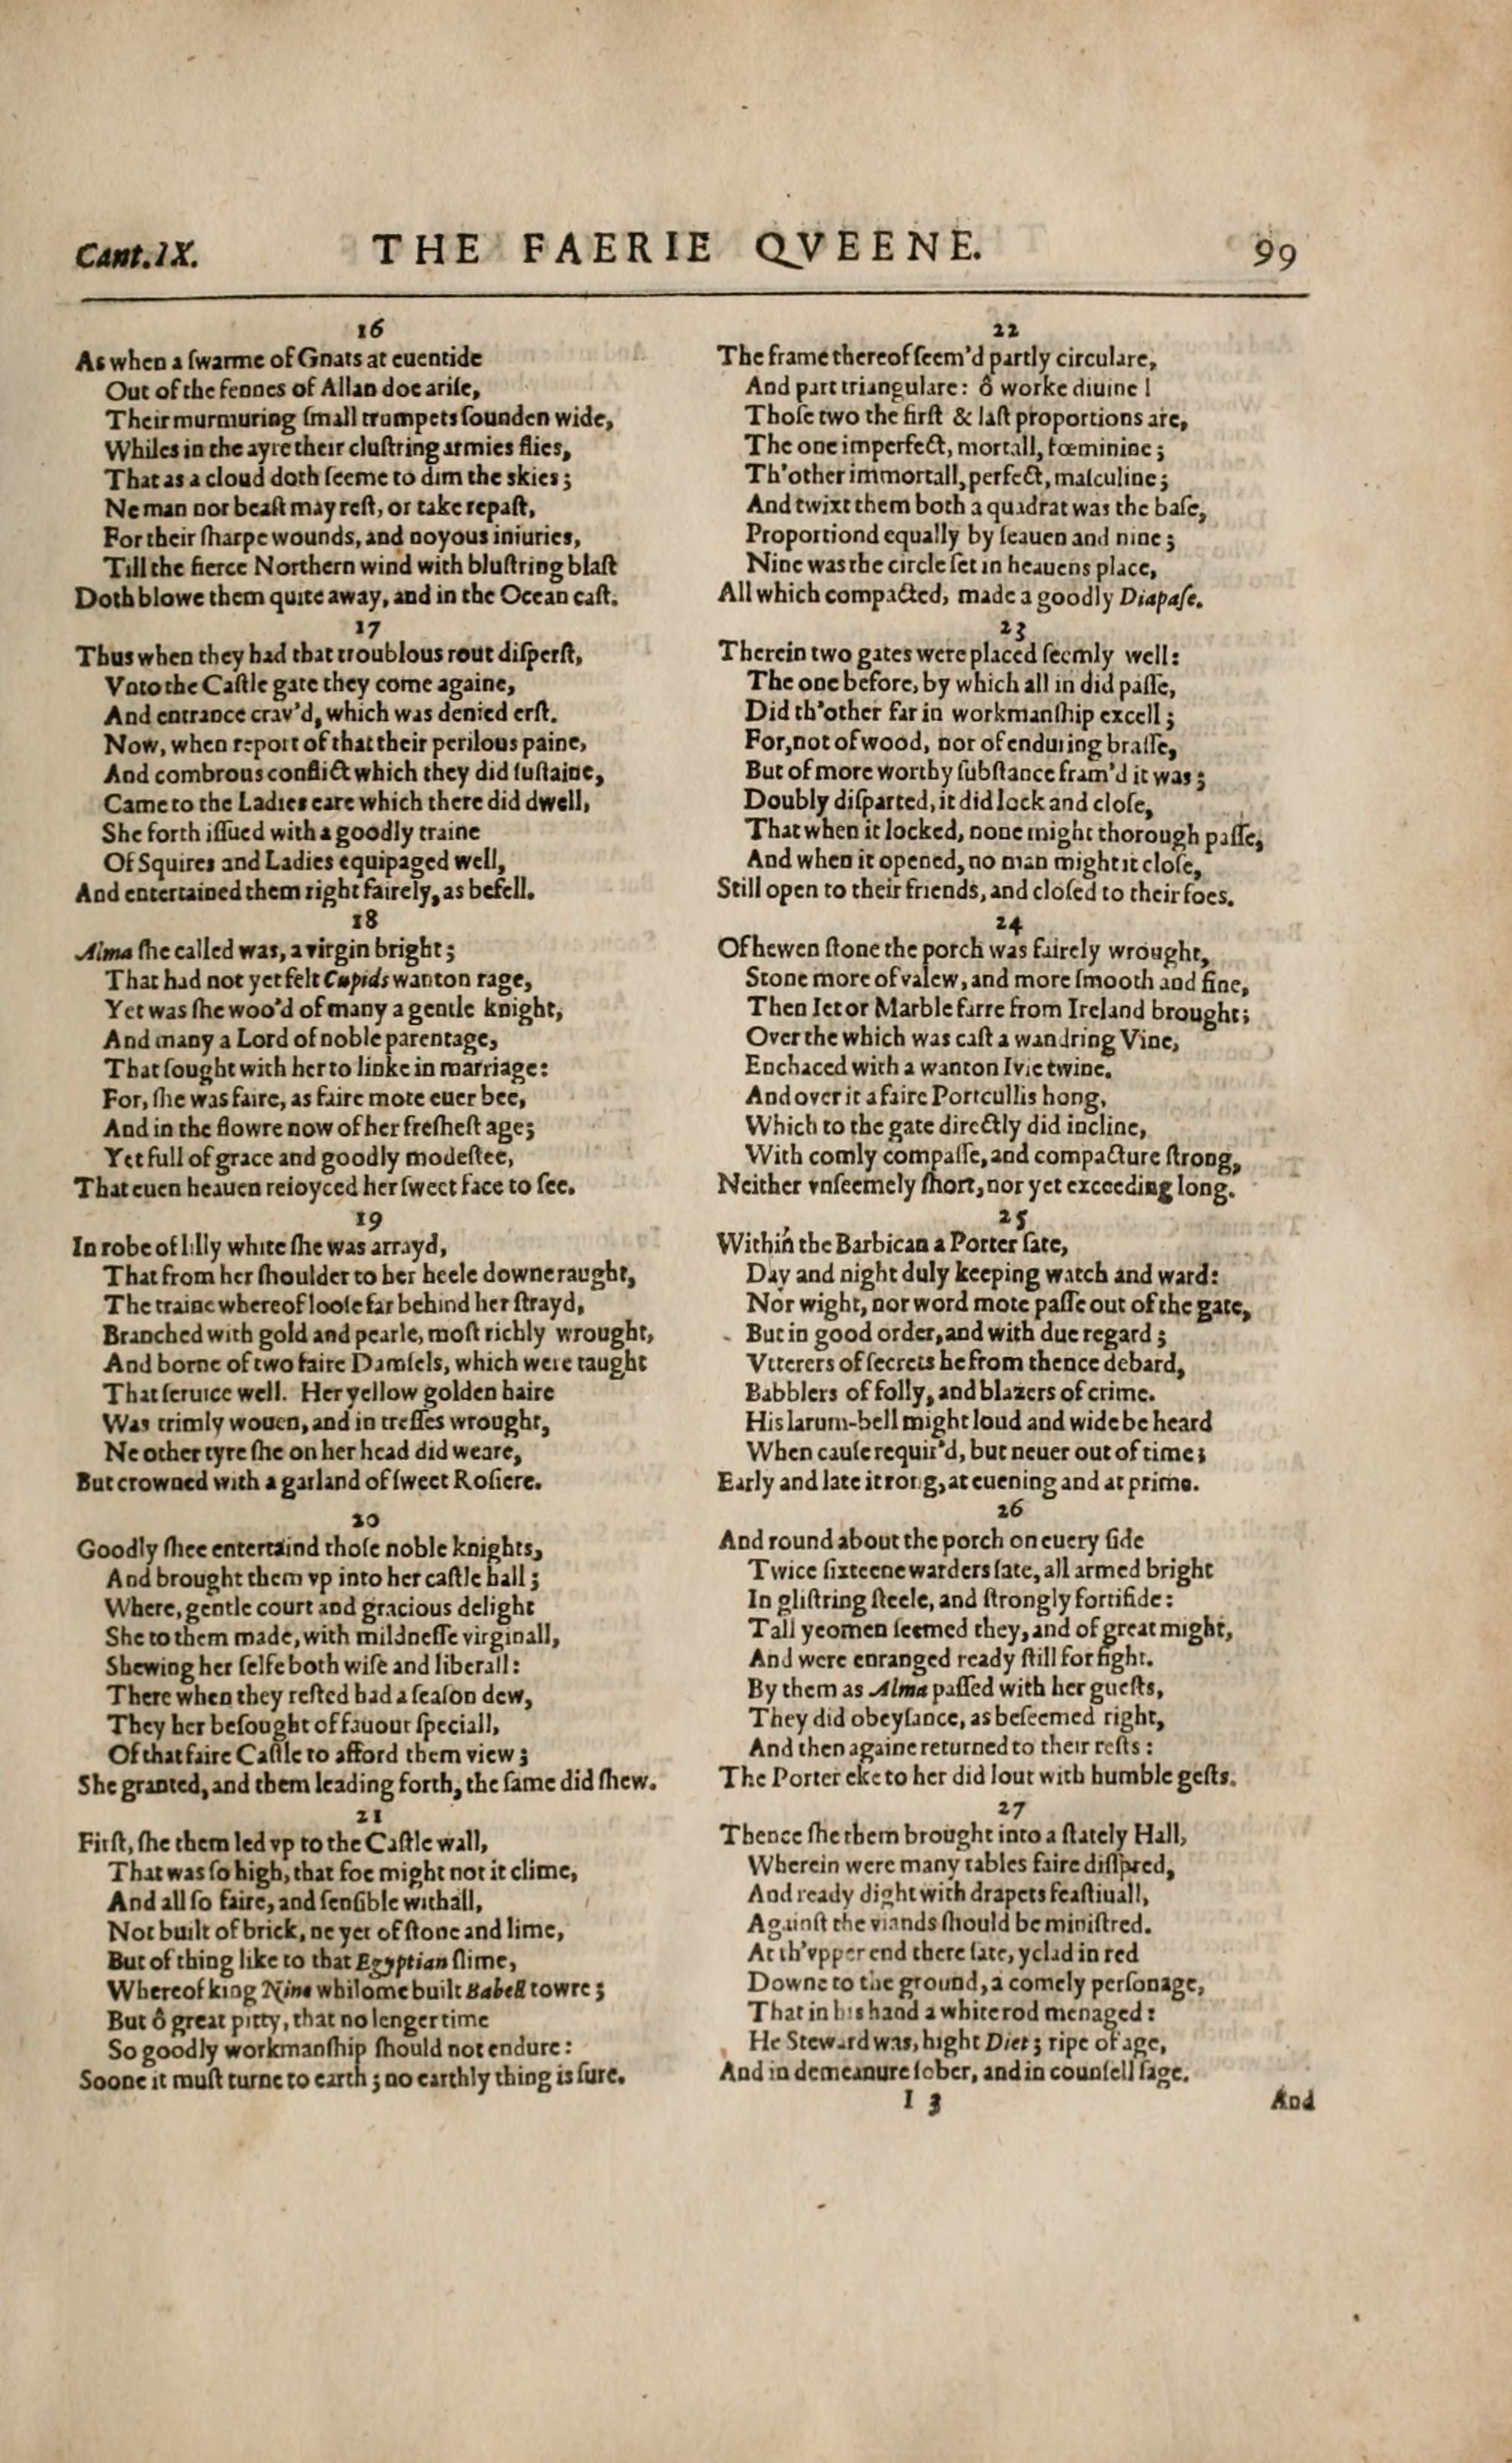 Cant.IX.
THE FAERIE QVEENE.
99
16
As when a ſwarme of Gnats at euentide
Out of the fennes of Allan doe ariſe,
Their murmuring ſmall trumpets ſounden wide,
Whiles in the ayre their cluſtring armies flies,
That as a cloud doth ſeeme to dim the skies;
Ne man nor beaſt may reſt, or take repaſt,
For their ſharpe wounds, and noyous iniuries,
Till the fierce Northern wind with bluſtring blaſt
Doth blowe them quite away, and in the Ocean caſt.
17
Thus when they had that troublous rout diſperſt,
Vnto the Caſtle gate they come againe,
And entrance crav'd, which was denied erſt.
Now, when report of that their perilous paine,
And combrous conflict which they did ſuſtaine,
Came to the Ladies eare which there did dwell,
She forth iſſued with a goodly traine
Of Squires and Ladies equipaged well,
And entertained them right fairely, as befell.
18
Alma ſhe called was, a virgin bright;
That had not yet felt Cupids wanton rage,
Yet was ſhe woo'd of many a gentle knight,
And many a Lord of noble parentage,
That ſought with her to linke in marriage:
For, ſhe was faire, as faire mote euer bee,
And in the flowre now of her freſheſt age;
Yet full of grace and goodly modeſtee,
That euen heauen reioyced her ſweet face to ſee.
19
In robe of lilly white ſhe was arrayd,
That from her ſhoulder to her heele downe raught,
The traine whereof looſe far behind her ſtrayd,
Branched with gold and pearle, moſt richly wrought,
And borne of two faire Damſels, which were taught
That ſeruice well. Her yellow golden haire
Was trimly wouen, and in treſſes wrought,
Ne other tyre ſhe on her head did weare,
But crowned with a garland of ſweet Roſiere.
20
Goodly ſhee entertaind thoſe noble knights,
And brought them vp into her caſtle hall;
Where, gentle court and gracious delight
She to them made, with mildneſſe virginall,
Shewing her ſelfe both wiſe and liberall:
There when they reſted had a ſeaſon dew,
They her beſought of fauour ſpeciall,
Of that faire Caſtle to afford them view;
She granted, and them leading forth, the ſame did ſhew.
21
Firſt, ſhe them led vp to the Caſtle wall,
That was ſo high, that foe might not it clime,
And all ſo faire, and ſenſible withall,
Not built of brick, ne yet of ſtone and lime,
But of thing like to that Egyptian ſlime,
Whereof king Nine whilome built Babell towre;
But ô great pitty, that no lenger time
So goodly workmanſhip ſhould not endure:
Soone it muſt turne to earth; no earthly thing is ſure.
22
The frame thereof ſeem'd partly circulare,
And part triangulare: ô worke diuine!
Thoſe two the firſt & laſt proportions are,
The one imperfect, mortall, fœminine;
Th'other immortall, perfect, maſculine;
And twixt them both a quadrat was the baſe,
Proportiond equally by ſeauen and nine;
Nine was the circle ſet in heauens place,
All which compacted, made a goodly Diapaſe.
23
Therein two gates were placed ſeemly well:
The one before, by which all in did paſſe,
Did th'other far in workmanſhip excell;
For, not of wood, nor of enduring braſſe,
But of more worthy ſubſtance fram'd it was;
Doubly diſparted, it did lock and cloſe,
That when it locked, none might thorough paſſe,
And when it opened, no man might it cloſe,
Still open to their friends, and cloſed to their foes.
24
Of hewen ſtone the porch was fairely wrought,
Stone more of valew, and more ſmooth and fine,
Then Iet or Marble farre from Ireland brought;
Over the which was caſt a wandring Vine,
Enchaced with a wanton Ivie twine.
And over it a faire Portcullis hong,
Which to the gate directly did incline,
With comly compaſſe, and compacture ſtrong,
Neither vnſeemely ſhort, nor yet exceeding long.
25
Within the Barbican a Porter ſate,
Day and night duly keeping watch and ward:
Nor wight, nor word mote paſſe out of the gate,
But in good order, and with due regard;
Vtterers of ſecrets he from thence debard,
Babblers of folly, and blazers of crime.
His larum-bell might loud and wide be heard
When cauſe requir'd, but neuer out of time;
Early and late it rong, at euening and at prime.
26
And round about the porch on euery ſide
Twice ſixteene warders ſate, all armed bright
In gliſtring ſteele, and ſtrongly fortifide:
Tall yeomen ſeemed they, and of great might,
And were enranged ready ſtill for fight.
By them as Alma paſſed with her gueſts,
They did obeyſance, as beſeemed right,
And then againe returned to their reſts:
The Porter eke to her did lout with humble geſts.
27
Thence ſhe them brought into a ſtately Hall,
Wherein were many tables faire diſpred,
And ready dight with drapets feaſtiuall,
Againſt the viands ſhould be miniſtred.
At th'vpper end there ſate, yclad in red
Downe to the ground, a comely perſonage,
That in his hand a white rod menaged:
He Steward was, hight Diet; ripe of age,
And in demeanure ſober, and in counſell ſage.
I 3
And